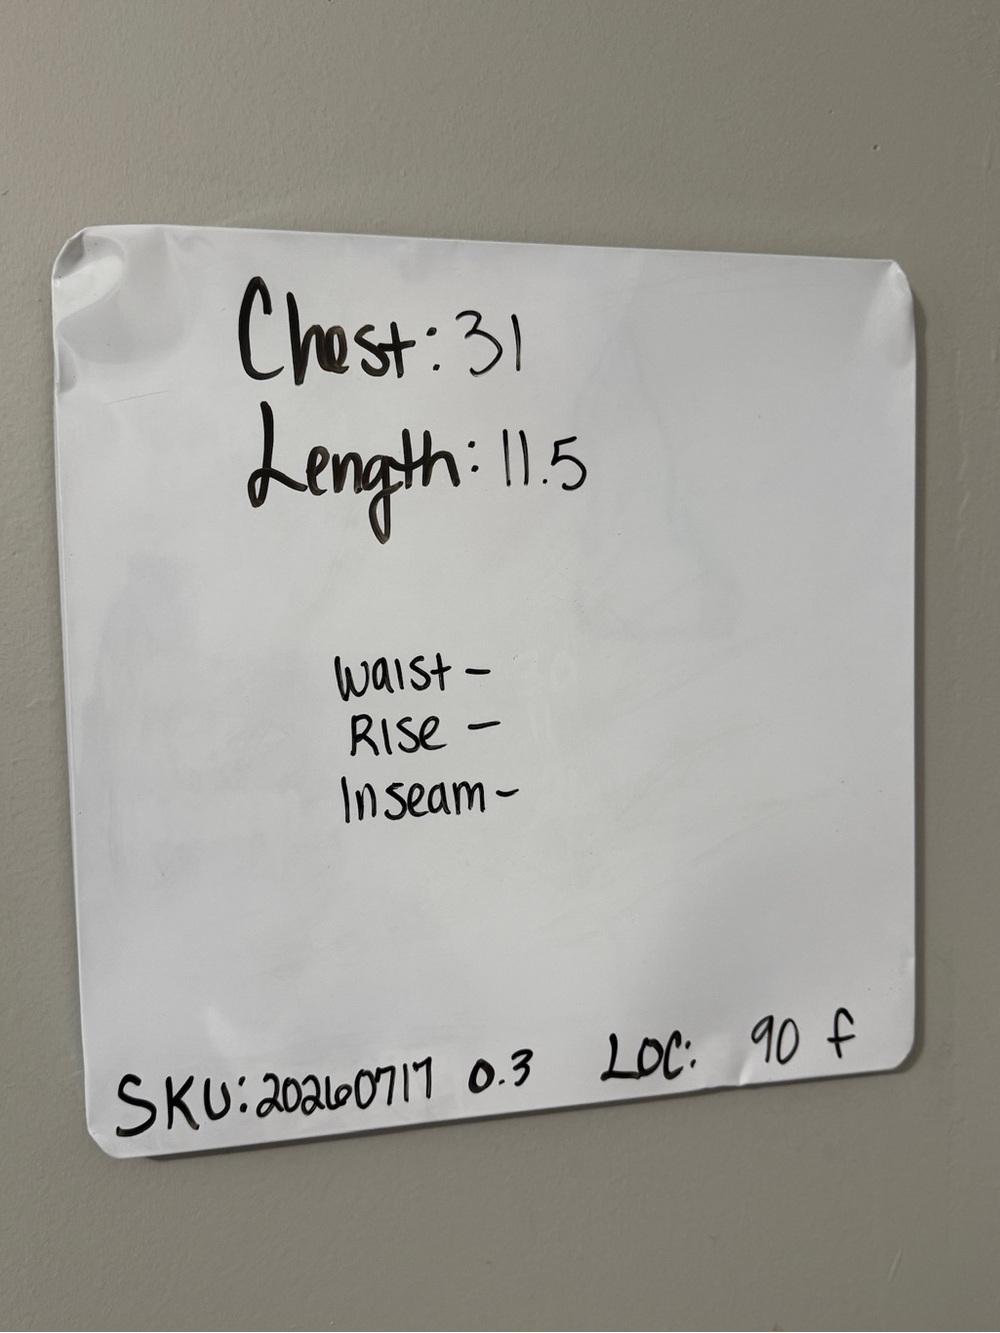 Chest: 31
Length: 11.5
Waist -
Rise -
Inseam -
SKU: 20260717 0.3 LOC: 90 f